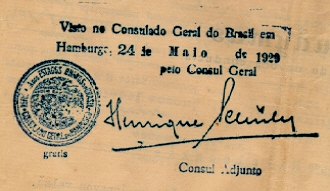 Visto no Consulado Geral do Brasil em
Hamburgo, 24 de Maio de 1929
pelo Consul Geral
Henrique
gratis
Consul Adjunto